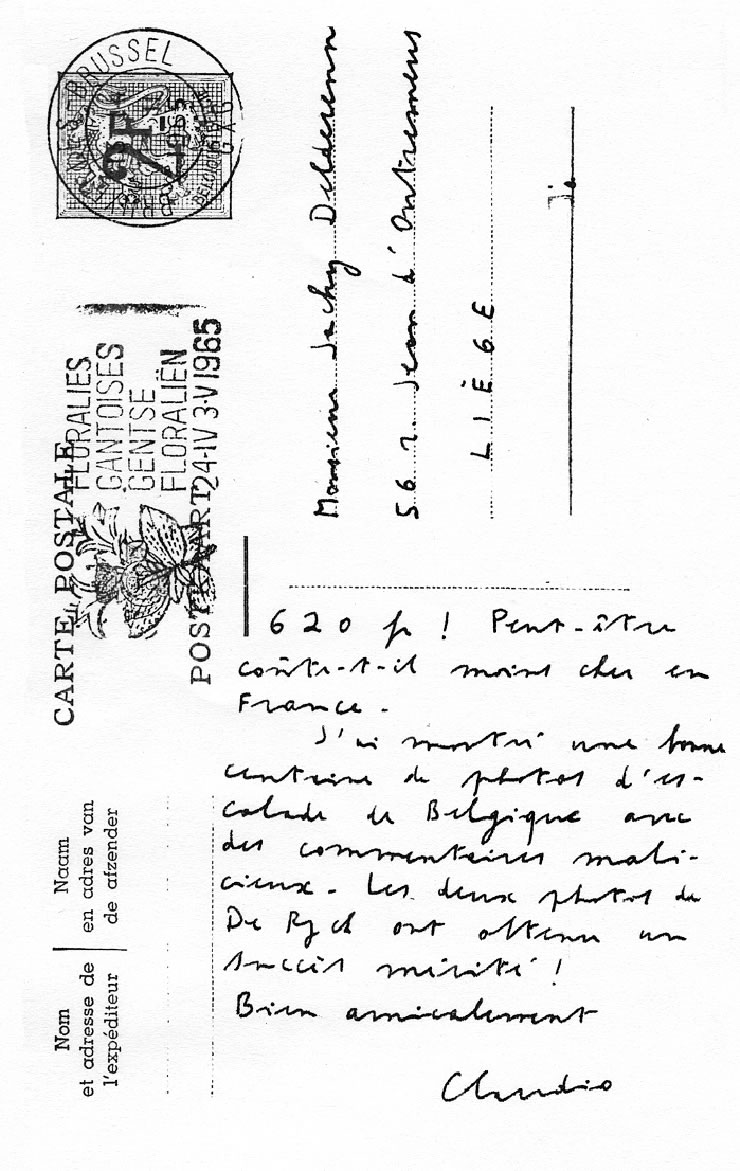 CARTE POSTALE
POSTKAART
BRUXELLES BRUSSEL
1965
2F
BELGIQUE-BELGIE
FLORALIES
GANTOISES
GENTSE
FLORALIËN
24-IV 3-V 1965
Monsieur Jacky Delderenn
56 r. Jean d'Outremeus
LIÈGE
Nom
et adresse de
l'expéditeur
Naam
en adres van
de afzender
620 fr ! Peut-être
coûte-t-il moins cher en
France.
J'ai montré une bonne
centaine de photos d'es-
calade de Belgique avec
des commentaires mali-
cieux. Les deux photos de
De Rych ont obtenu un
succès mérité !
Bien amicalement
Claudio